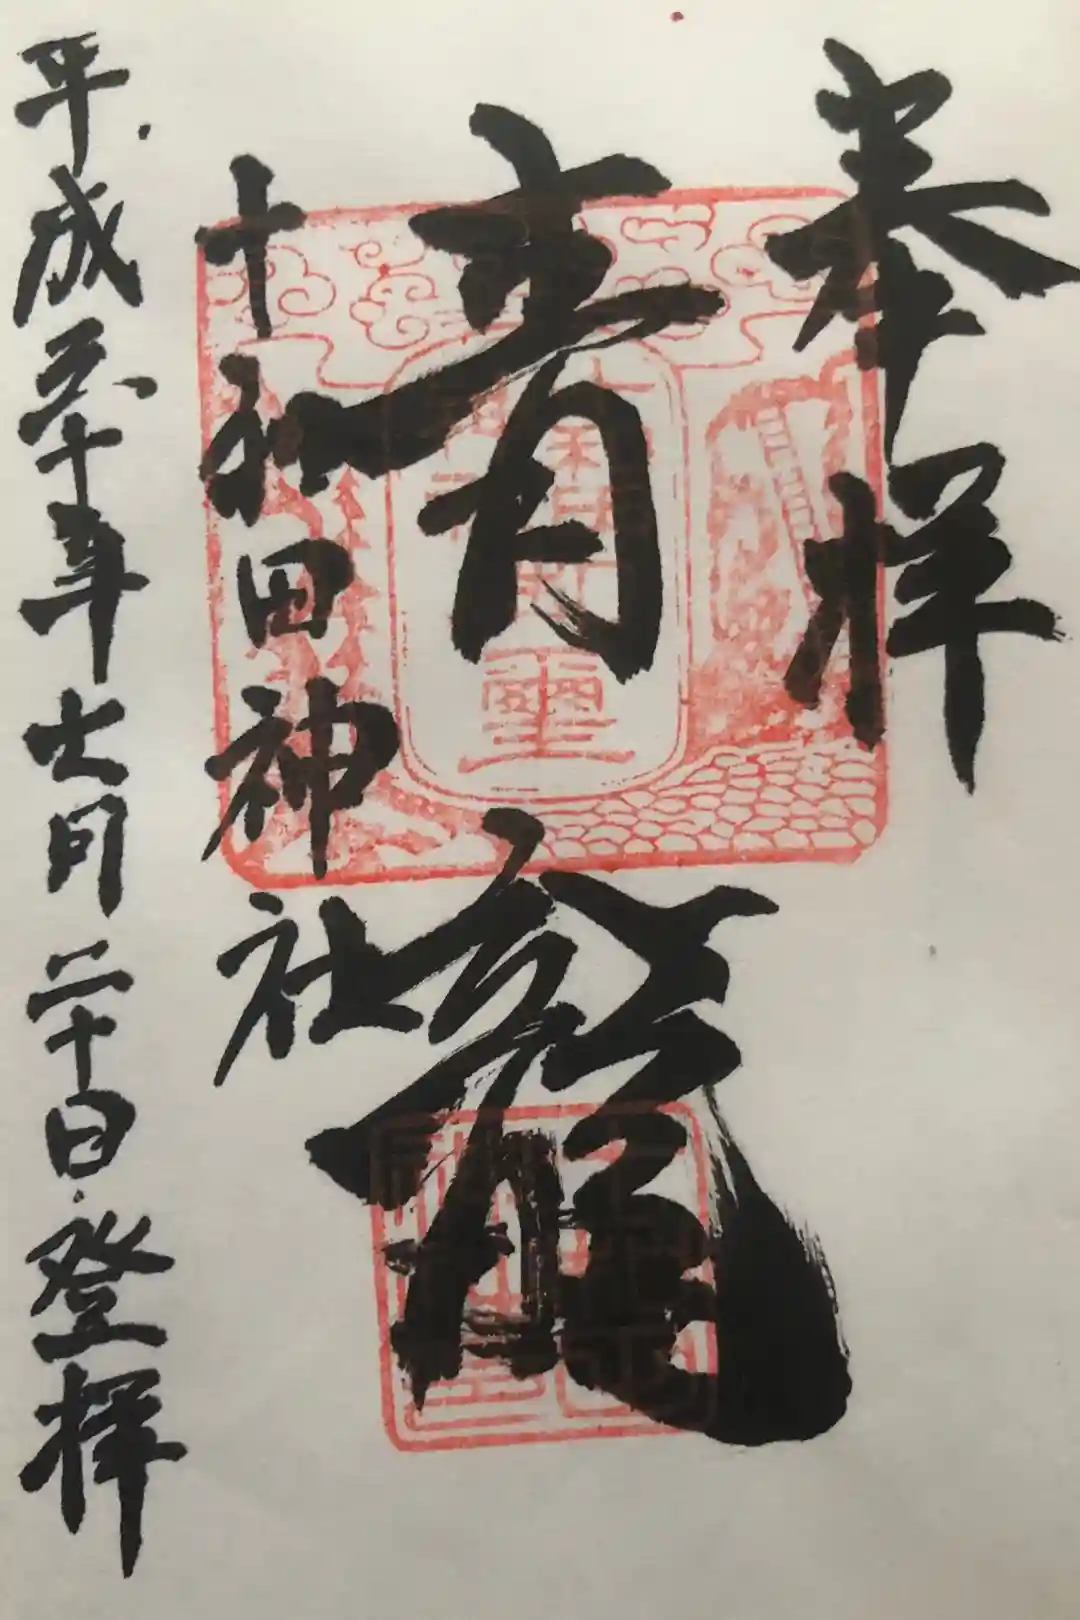 奉拝
青龍
十和田神社
平成三十年六月二十日登拝